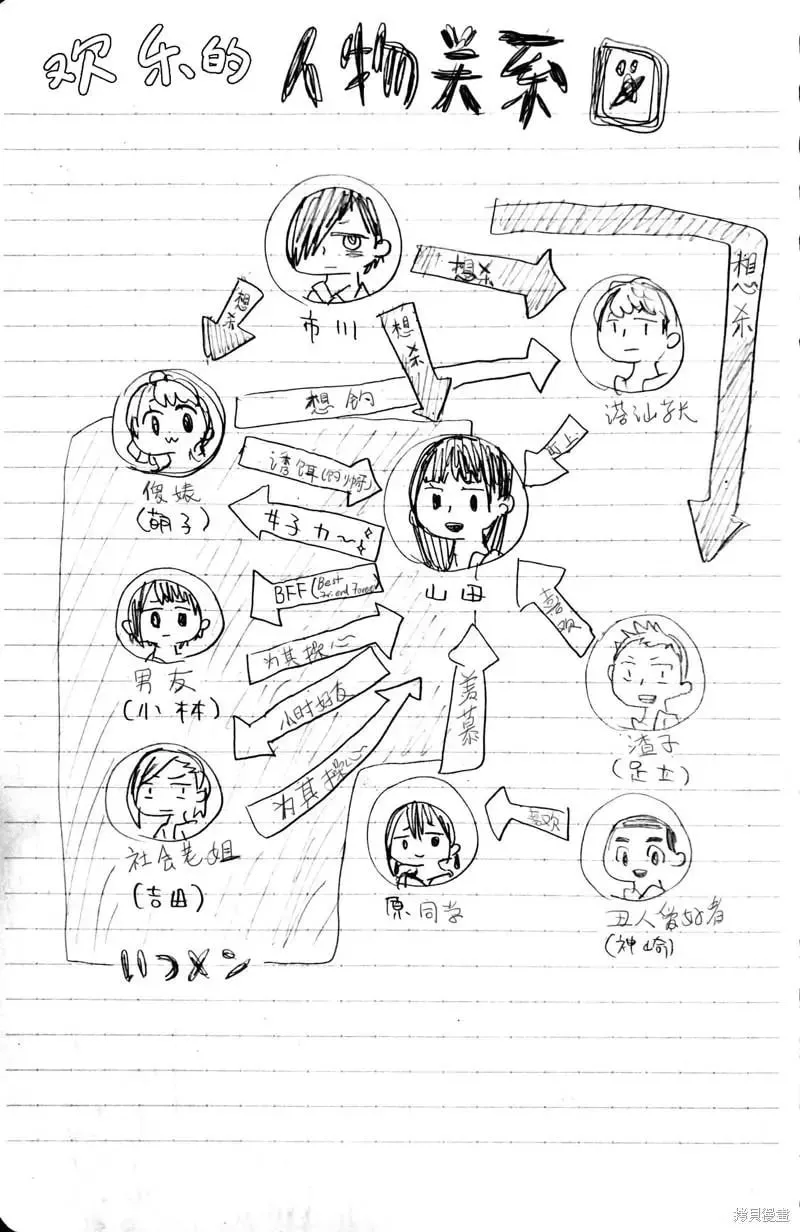 欢乐的 人物关系图
想杀
想杀
想杀
想杀
市川
搭讪学长
想钓
盯上
诱饵(钓帅)
女子力~
傻婊
(萌子)
山田
BFF(Best
Friend Forever)
喜欢
为其操心
男友
(小林)
小时好友
羡慕
渣子
(足立)
为其操心
喜欢
社会老姐
(吉田)
原同学
丑人爱好者
(神崎)
いつメン
拷貝漫畫